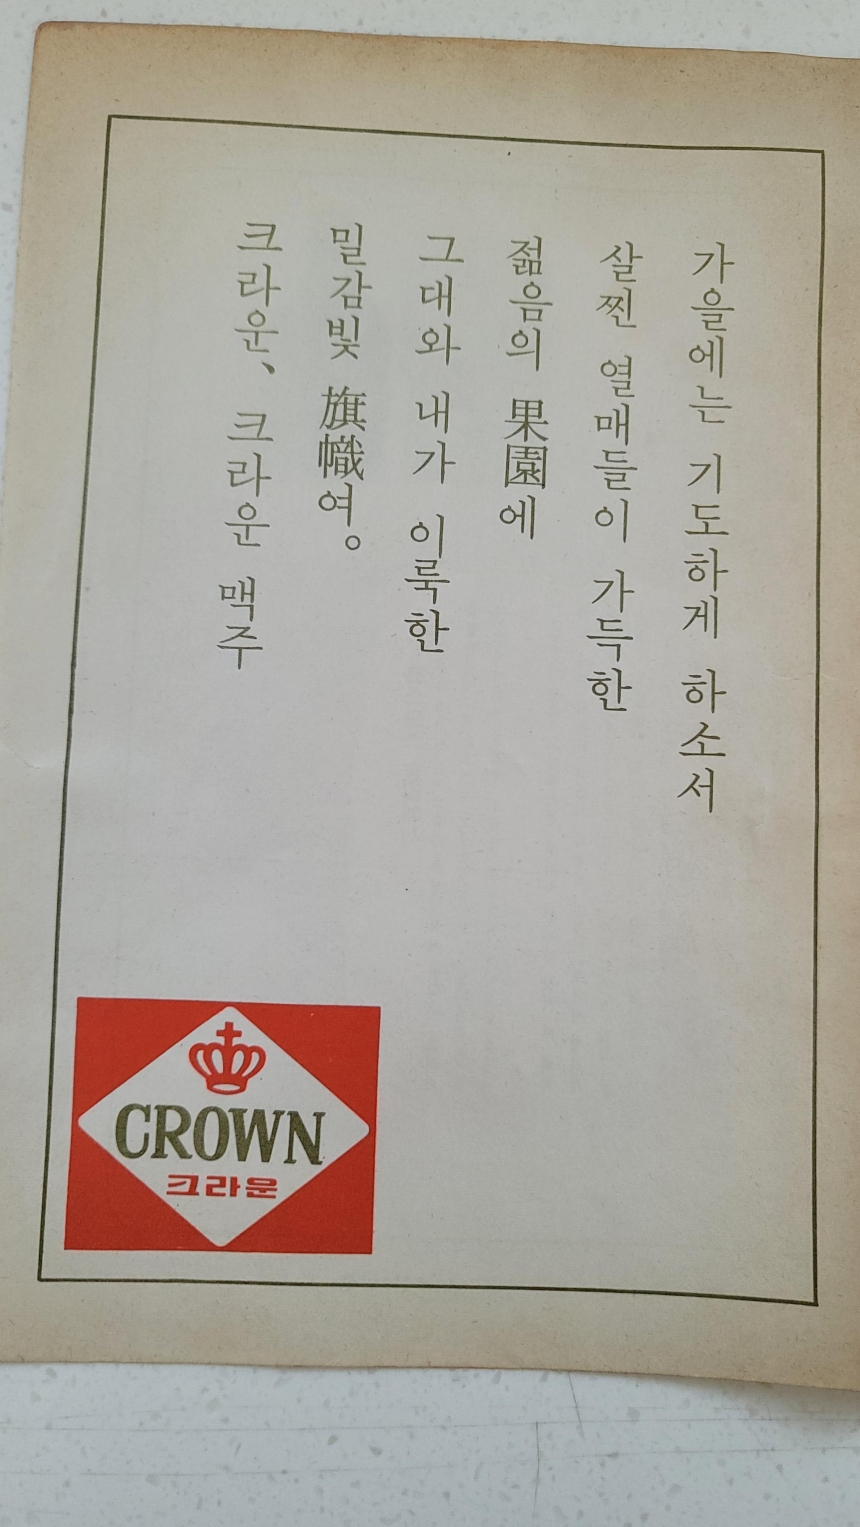 가을에는 기도하게 하소서
살찐 열매들이 가득한
젊음의 果園에
그대와 내가 이룩한
밀감빛 旗幟여。
크라운、크라운 맥주
CROWN
크라운